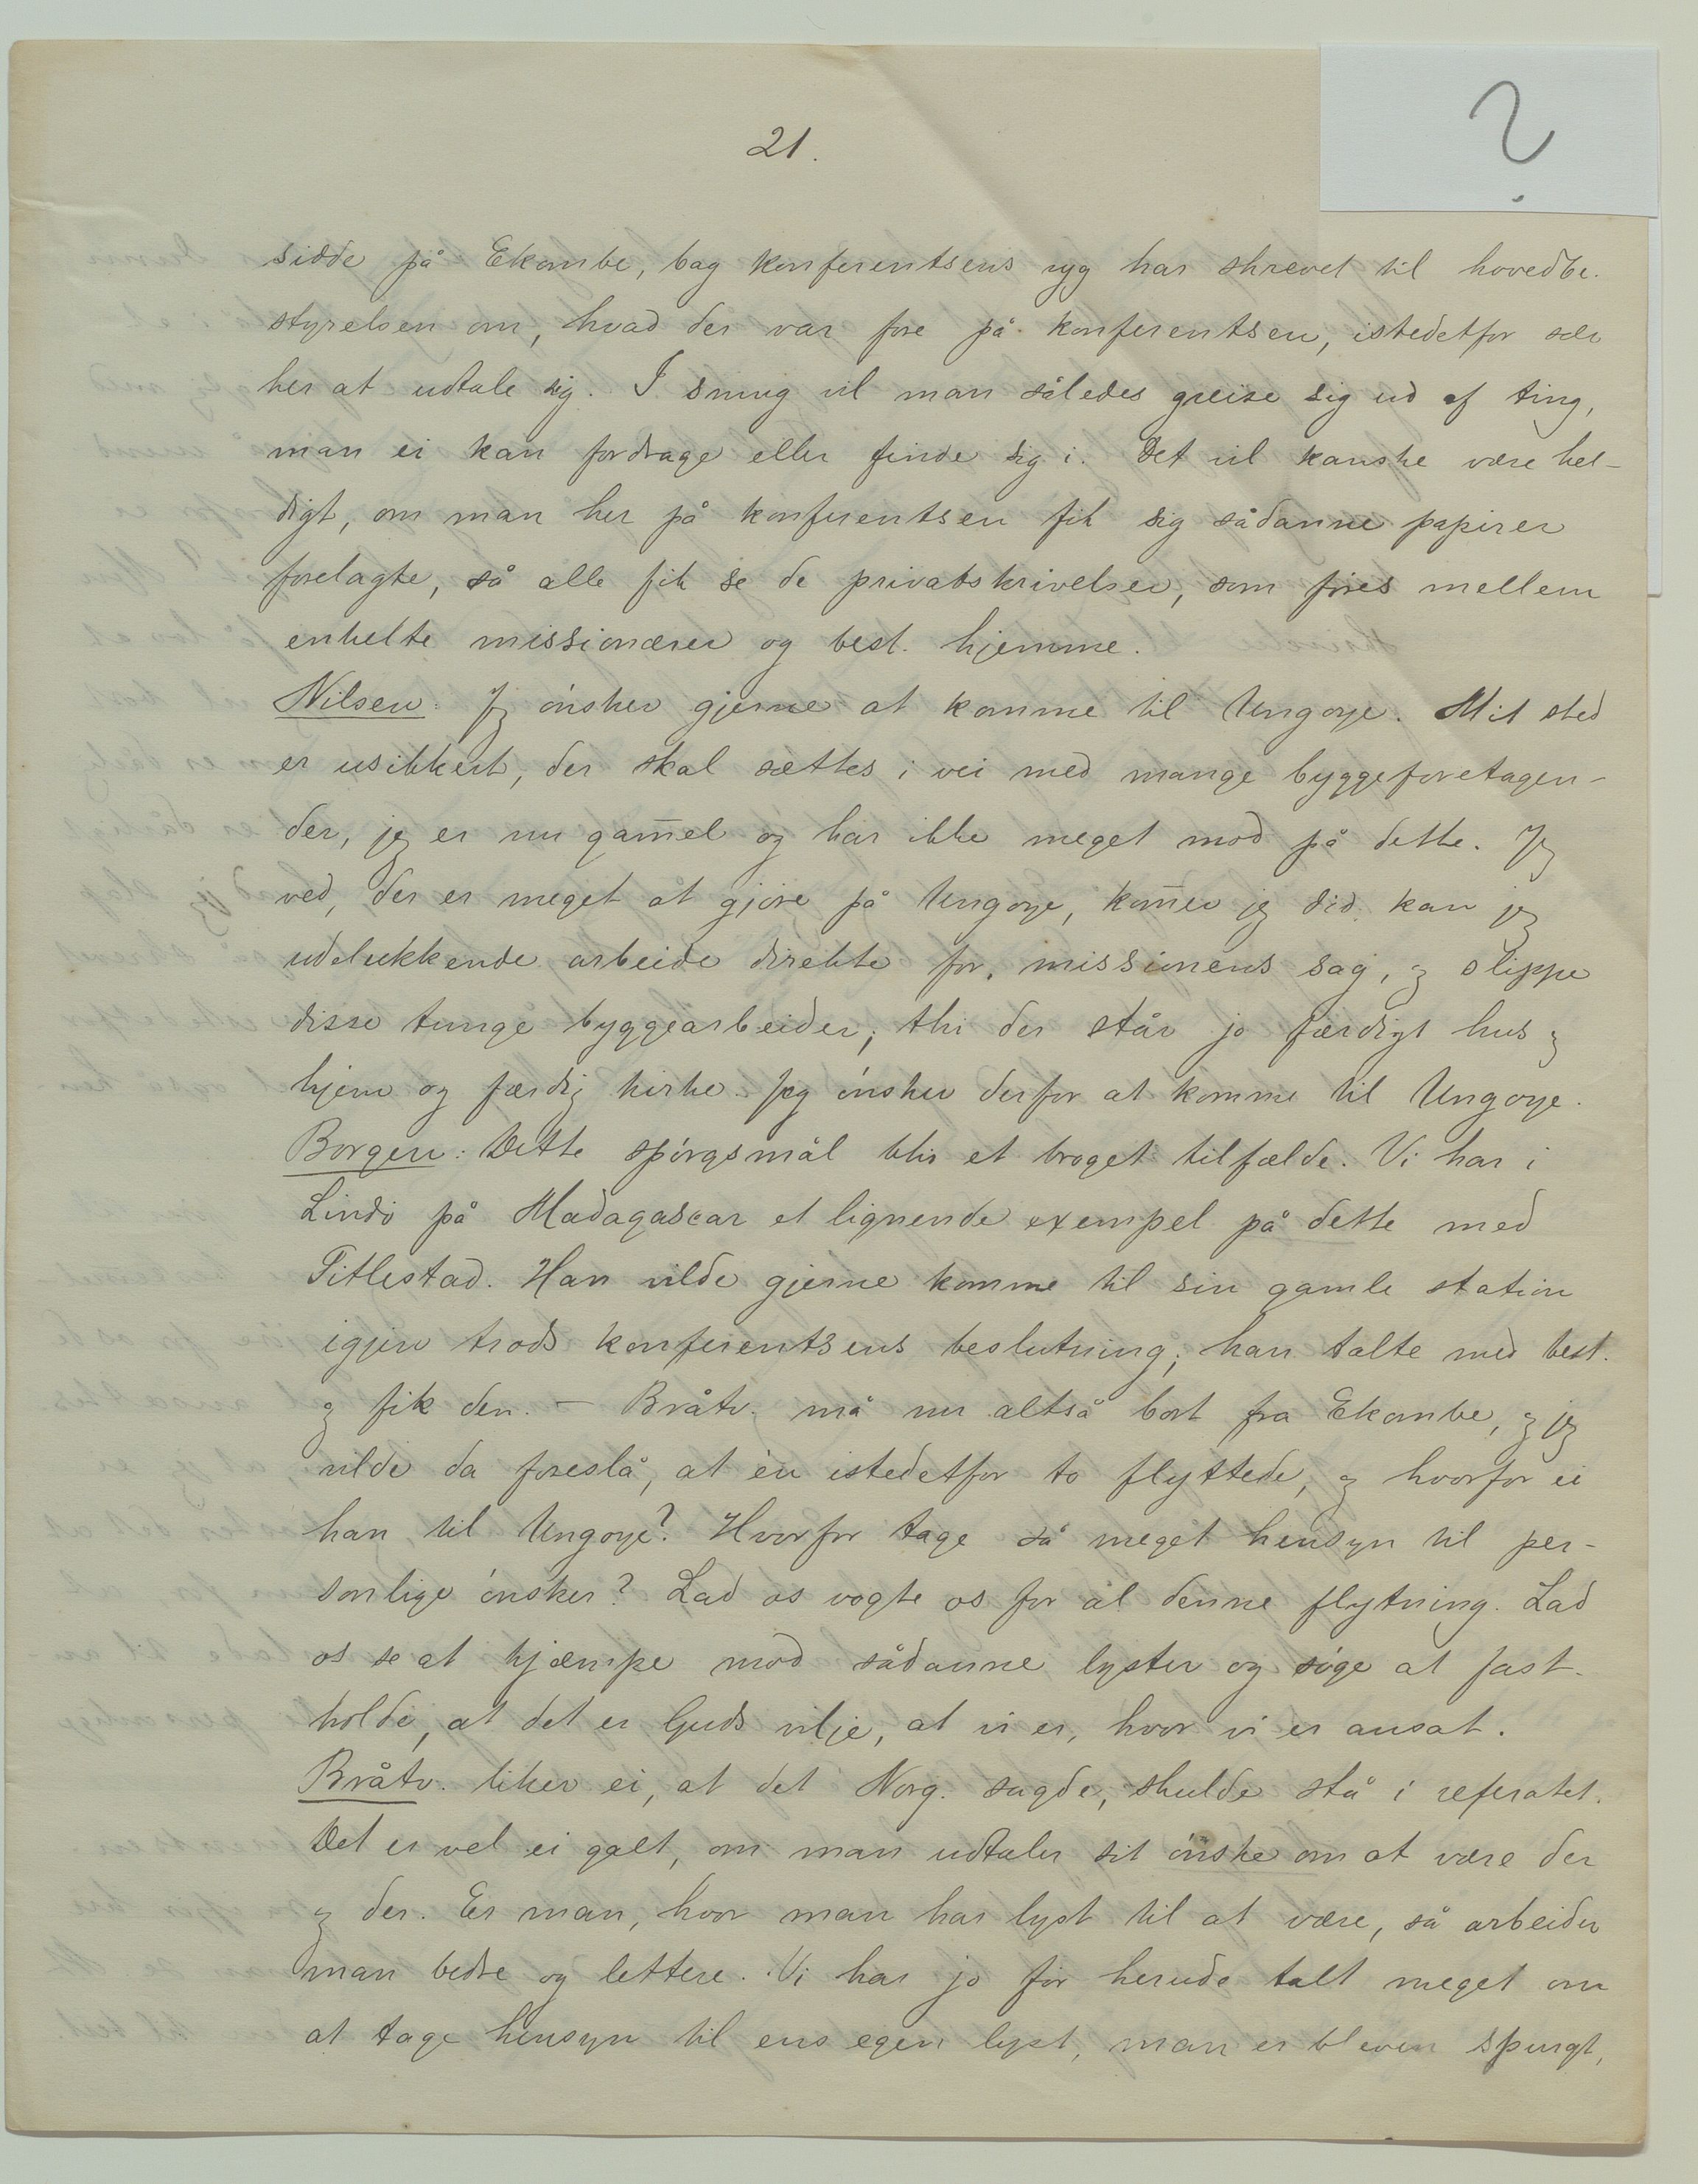 ?
21.
sidde på Ekombe, bag konferentsens ryg har skrevet til hovedbe-
styrelsen om, hvad der var fore på konferentsen, istedetfor
her at udtale sig. I smug vil man således greise sig ud af ting,
man ei kan fordrage eller finde sig i. Det vil kanske være hel-
digt, om man her på konferentsen fik sig sådanne papirer
forelagte, så alle fik se de privatskrivelser, som føres mellem
enkelte missionærer og best. hjemme.
Nilsen: Jeg ønsker gjerne at komme til Ungoye. Mit sted
er usikkert, der skal sættes i vei med mange byggeforetagen-
der, jeg er nu gam̄el og har ikke meget mod på dette. Jeg
ved, der er meget at gjøre på Ungoye, kom̄er jeg did, kan jeg
udelukkende arbeide direkte for missionens sag, og slippe
disse tunge byggearbeider; thi der står jo færdigt hus og
hjem og færdig kirke. Jeg ønsker derfor at komme til Ungoye.
Borgen: Dette spørgsmål blir et broget tilfælde. Vi har i
Lindø på Madagascar et lignende exempel på dette med
Titlestad. Han vilde gjerne komme til sin gamle station
igjen trods konferentsens beslutning; han talte med best.
og fik den. — Bråtv. må nu altså bort fra Ekombe, og jeg
vilde da foreslå, at én istedetfor to flyttede, og hvorfor ei
han til Ungoye? Hvorfor tage så meget hensyn til per-
sonlige ønsker? Lad os vogte os for al denne flytning. Lad
os se at kjæmpe mod sådanne lyster og søge at fast-
holde, at det er Guds vilje, at vi er, hvor vi er ansat.
Bråtv. liker ei, at det Norg. sagde, skulde stå i referatet.
Det er vel ei galt, om man udtaler sit ønske om at være der
og der. Er man, hvor man har lyst til at være, så arbeider
man bedre og lettere. Vi har jo før herude talt meget om
at tage hensyn til ens egen lyst, man er bleven spurgt,